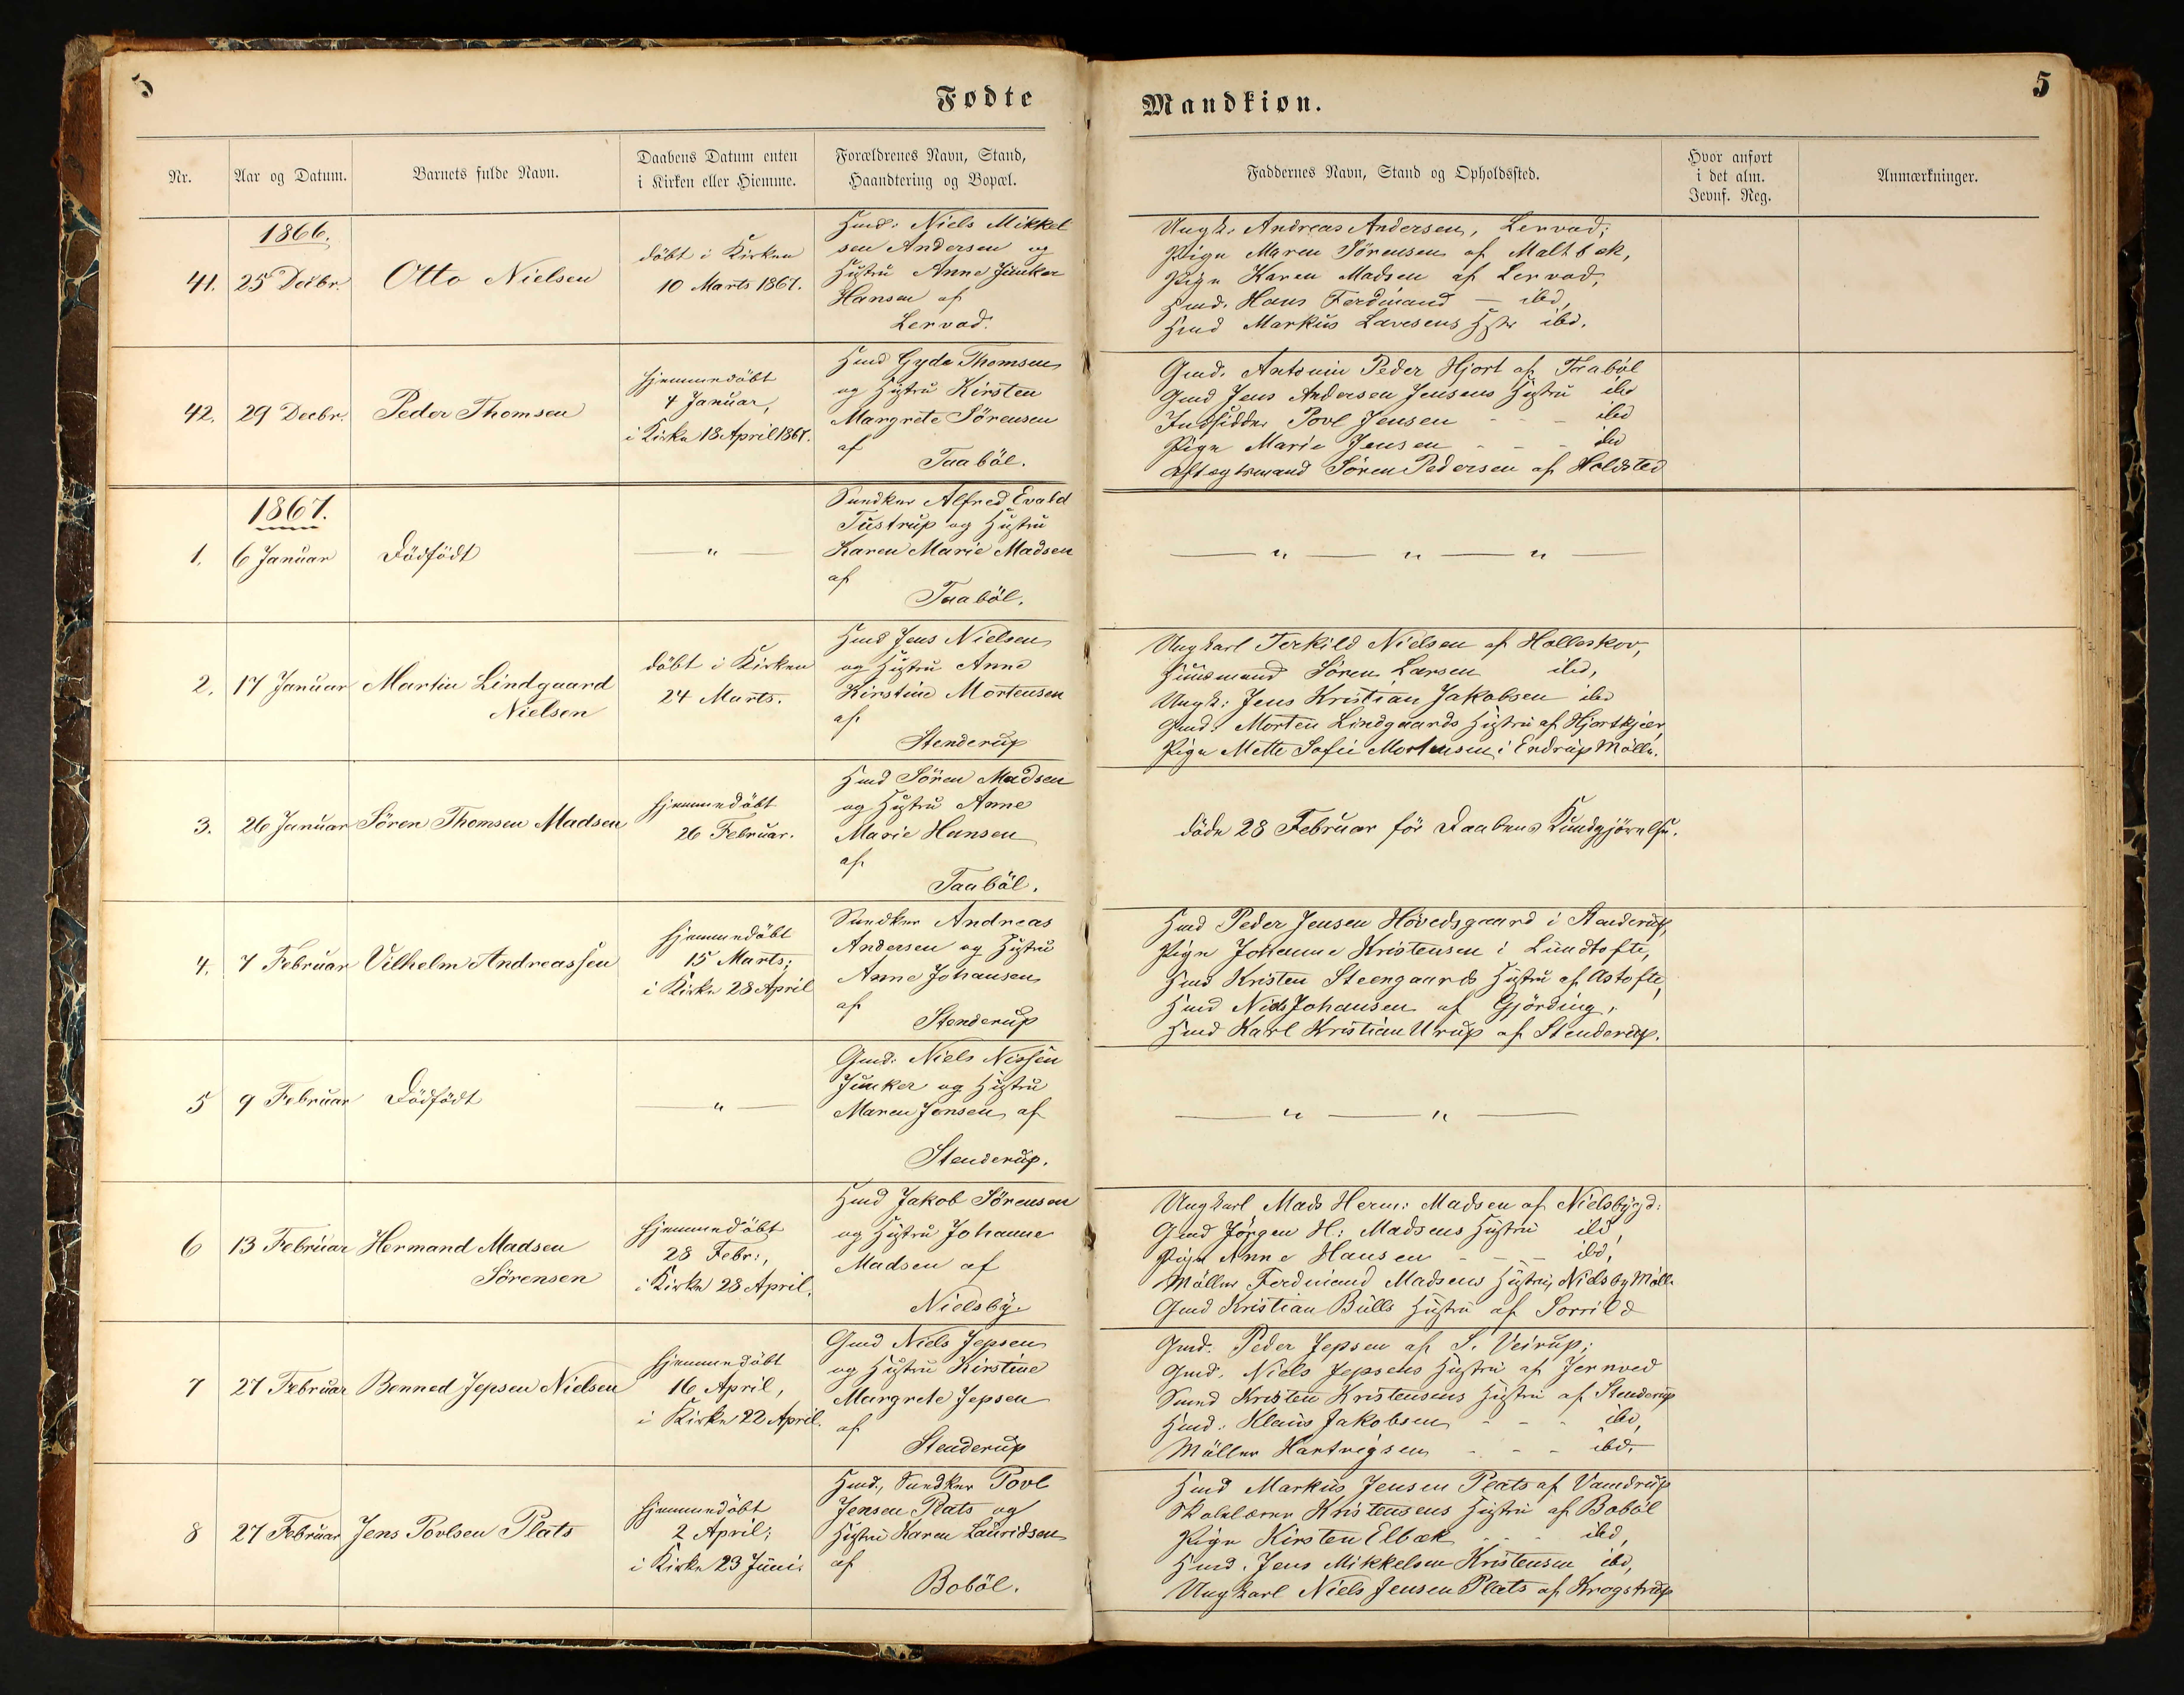 5
Fødte
Mandkiøn.
5
Nr.
Aar og Datum.
Barnets fulde Navn.
Daabens Datum enten
i Kirken eller Hiemme.
Forældrenes Navn, Stand,
Haandtering og Bopæl.
Faddernes Navn, Stand og Opholdssted.
Hvor anført
i det alm.
Jevnf. Reg.
Anmærkninger.
1866.
41.
25 Decbr.
Otto Nielsen
döbt i Kirken
10 Marts 1867.
Hmd: Niels Mikkel
sen Andersen og
Hustru Anne Junker
Hansen af
Lervad.
Ungk. Andreas Andersen, Lervad;
Pige Maren Sörensen af Maltbæk,
Pige Karen Madsen af Lervad,
Hmd. Hans Ferdinand — ibd,
Hmd Markus Lavesens Hstr ibd.
42.
29 Decbr.
Peder Thomsen
hjemmedöbt
4 Januar,
i Kirke 18 April 1867.
Hmd Gyde Thomsen
og Hustru Kirsten
Margrete Sörensen
af
Taaböl.
Gmd. Antonin Peder Hjort af Taaböl
Gmd Jens Andersen Jensens Hustru ibd
Indsidder Povl Jensen - - - ibd
Pige Marie Jensen - - - ibd
Aftægtsmand Sören Pedersen af Holdsted
1867.
1.
6 Januar
Dödfödt
— " —
Snedker Alfred Evald
Tustrup og Hustru
Karen Marie Madsen
af
Taaböl.
— " — " — " —
2.
17 Januar
Martin Lindgaard
Nielsen
döbt i Kirken
24 Marts.
Hmd Jens Nielsen
og Hustru Anne
Kirstine Mortensen
af
Stenderup
Ungkarl Terkild Nielsen af Holleskov,
Huusmand Sören Larsen ibd,
Ungk: Jens Kristian Jakobsen ibd
Gmd: Morten Lindgaards Hustru af Hjortkjær,
Pige Mette Sofie Mortensen i Endrup Mölle.
3.
26 Januar
Sören Thomsen Madsen
hjemmedöbt
26 Februar.
Hmd Sören Madsen
og Hustru Anne
Marie Hansen
af
Taaböl.
döde 28 Februar för Daabens Kundgjörelse.
4.
7 Februar
Vilhelm Andreassen
hjemmedöbt
15 Marts;
i Kirke 28 April
Snedker Andreas
Andersen og Hustru
Anne Johansen
af
Stenderup
Hmd Peder Jensen Hövedsgaard i Stenderup,
Pige Johanne Kristensen i Lundtofte,
Hmd Kristen Steengaards Hustru af Astofte,
Hmd Niels Johansen af Gjörding,
Hmd Karl Kristian Urup af Stenderup.
5
9 Februar
Dödfödt
— " —
Gmd: Niels Nissen
Junker og Hustru
Maren Jensen af
Stenderup.
— " — " —
6
13 Februar
Hermand Madsen
Sörensen
hjemmedöbt
28 Febr:,
i Kirke 28 April.
Hmd Jakob Sörensen
og Hustru Johanne
Madsen af
Nielsby.
Ungkarl Mads Herm: Madsen af Nielsbygd:
Gmd Jörgen H: Madsens Hustru ibd,
Pige Anne Hansen - - - ibd,
Möller Ferdinand Madsens Hustru, Nielsby Mölle
Gmd Kristian Bulls Hustru af Sorrild
7
27 Februar
Benned Jepsen Nielsen
hjemmedöbt
16 April,
i Kirke 22 April.
Gmd Niels Jepsen
og Hustru Kirstine
Margrete Jepsen
af
Stenderup
Gmd. Peder Jepsen af S. Veirup;
Gmd. Niels Jepsens Hustru af Jernved
Smed Kristen Kristensens Hustru af Stenderup
Hmd: Klaus Jakobsen - - - ibd,
Möller Hartvigsen - - - ibd.
8
27 Februar
Jens Povlsen Plats
hjemmedöbt
2 April;
i Kirke 23 Juni.
Hmd., Snedker Povl
Jensen Plats og
Hustru Karen Lauridsen
af
Boböl.
Hmd Markus Jensen Plats af Vamdrup
Skolelærer Kristensens Hustru af Boböl
Pige Kirsten Elbæk - - - ibd,
Hmd. Jens Mikkelsen Kristensen ibd,
Ungkarl Niels Jensen Plats af Krogstrup